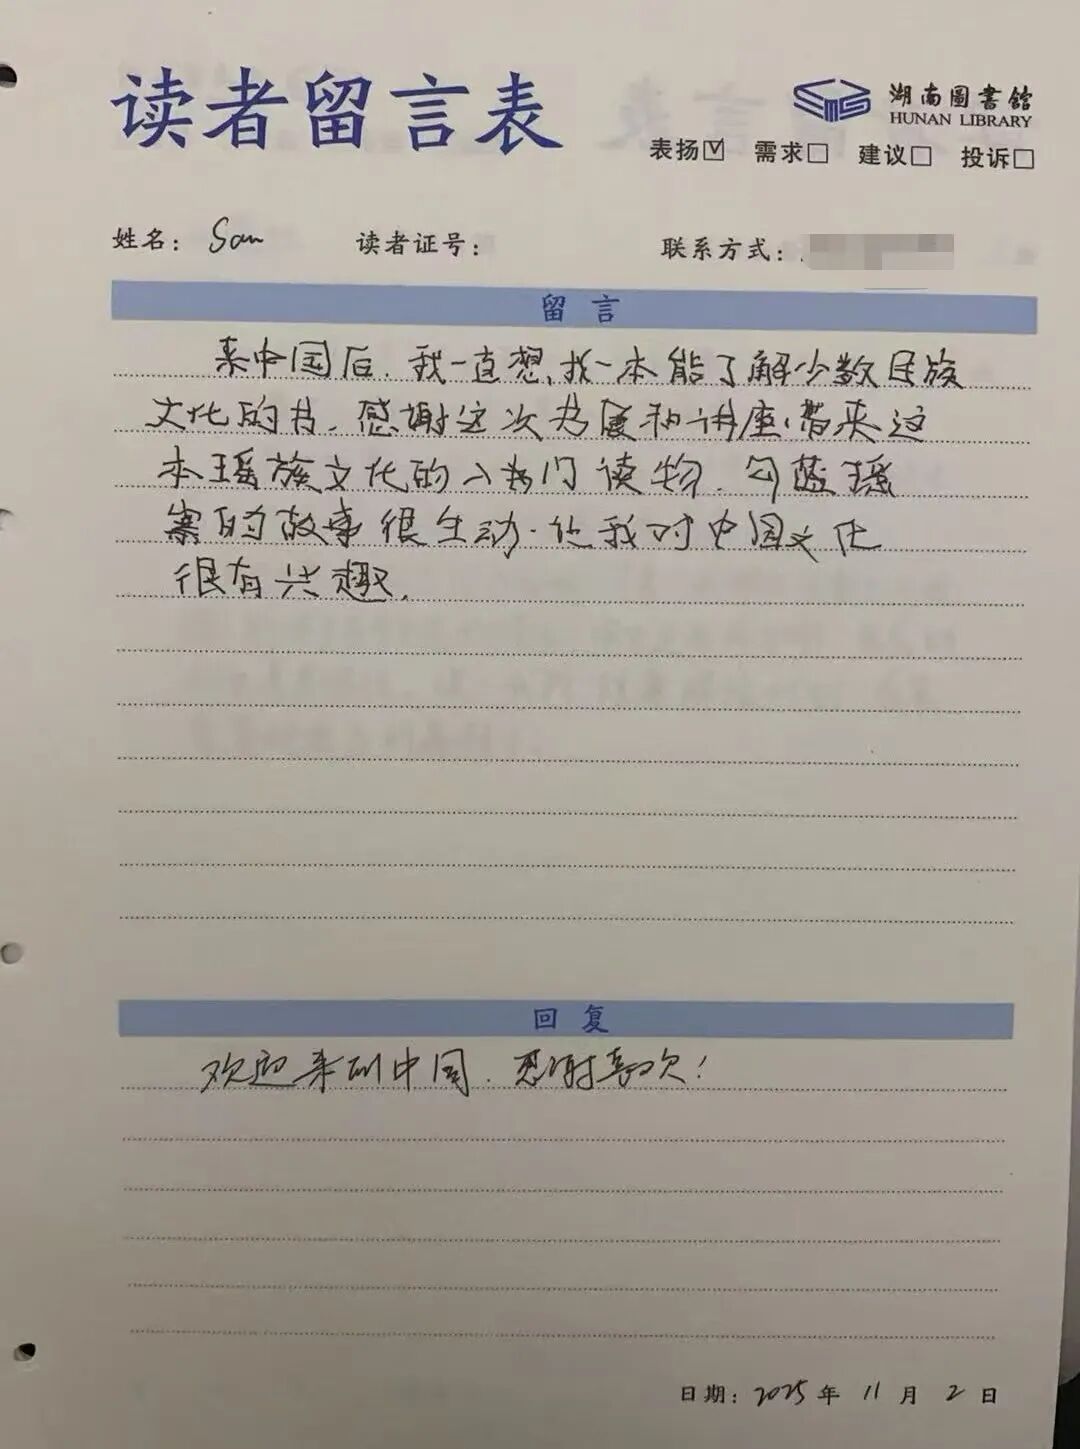 读者留言表
湖南圖書館
HUNAN LIBRARY
表扬☑ 需求□ 建议□ 投诉□
姓名： Sam 读者证号： 联系方式：
留言
来中国后，我一直想找一本能了解少数民族
文化的书，感谢这次书展和讲座，带来这
本瑶族文化的入门读物，勾蓝瑶
寨的故事很生动，让我对中国文化
很有兴趣.
回复
欢迎来到中国，感谢喜欢！
日期：2025年11月2日